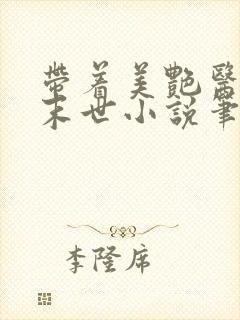 帶着美艷醫
末世小說筆
李隆席